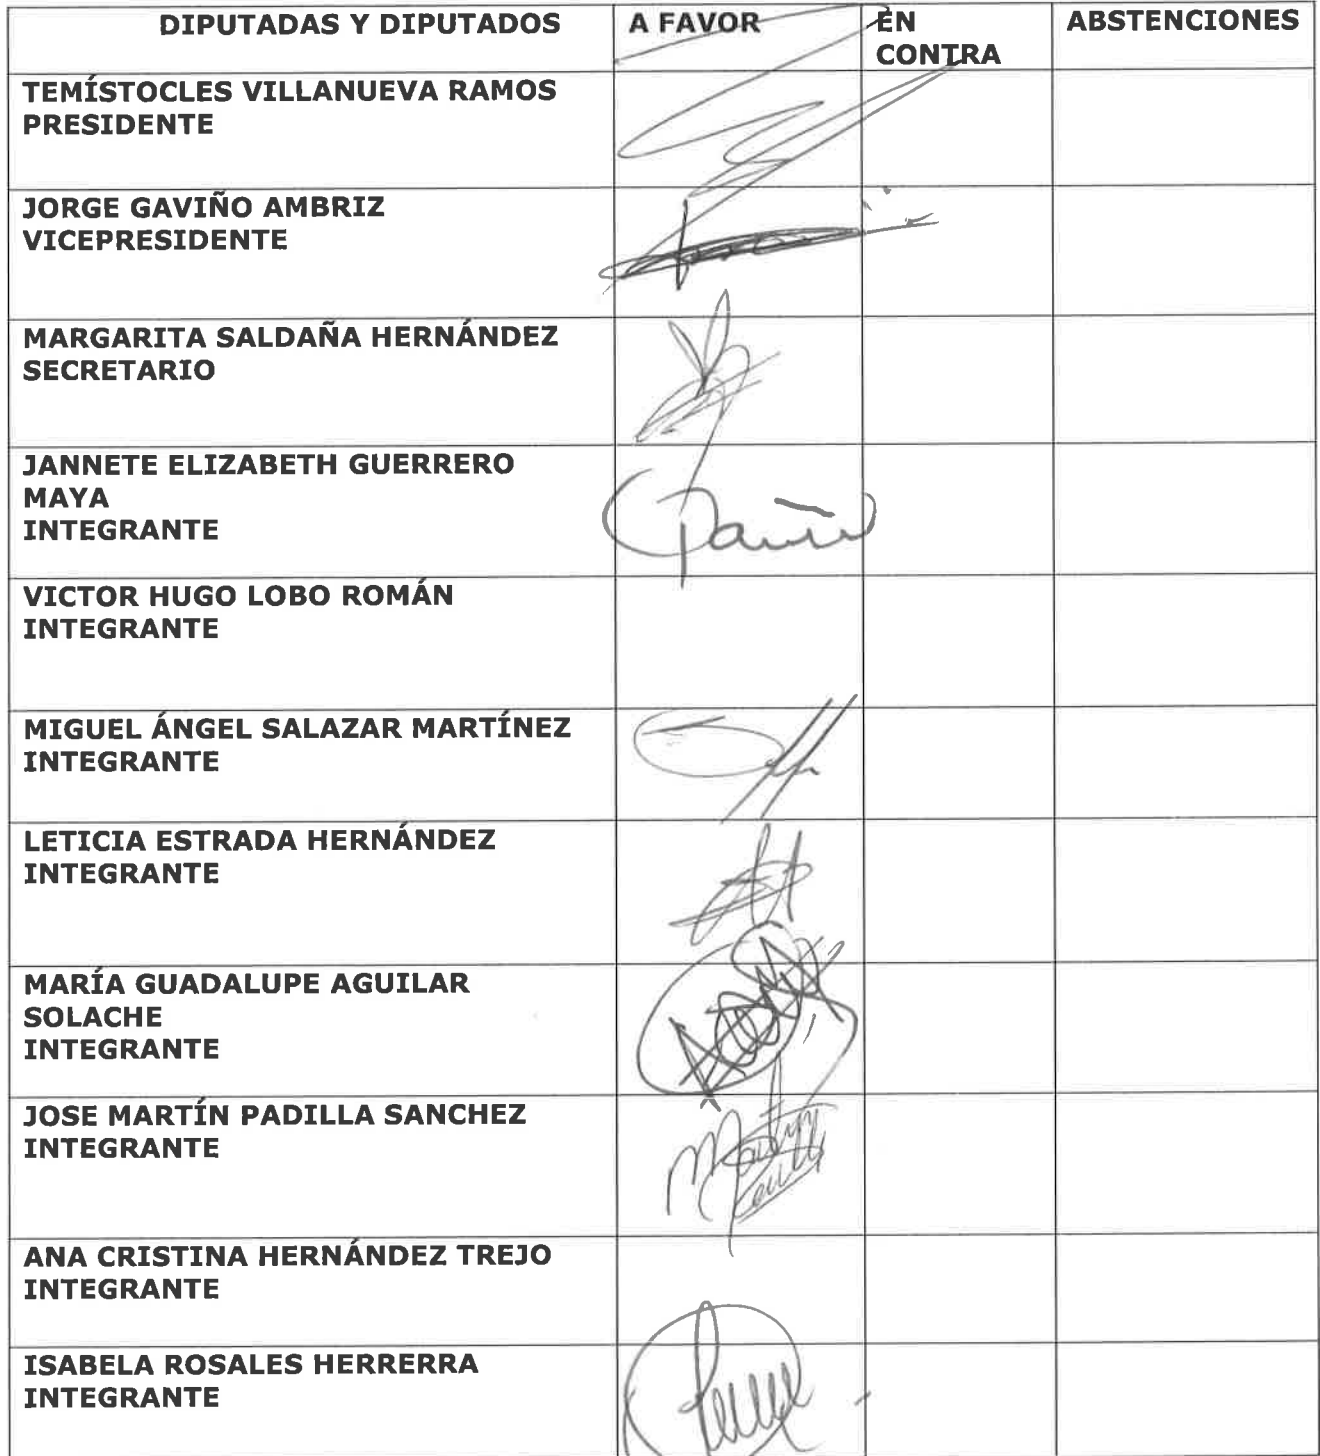 DIPUTADAS Y DIPUTADOS A FAVOR EN CONTRA ABSTENCIONES
TEMÍSTOCLES VILLANUEVA RAMOS
PRESIDENTE
JORGE GAVIÑO AMBRIZ
VICEPRESIDENTE
MARGARITA SALDAÑA HERNÁNDEZ
SECRETARIO
JANNETE ELIZABETH GUERRERO
MAYA
INTEGRANTE
VICTOR HUGO LOBO ROMÁN
INTEGRANTE
MIGUEL ÁNGEL SALAZAR MARTÍNEZ
INTEGRANTE
LETICIA ESTRADA HERNÁNDEZ
INTEGRANTE
MARÍA GUADALUPE AGUILAR
SOLACHE
INTEGRANTE
JOSE MARTÍN PADILLA SANCHEZ
INTEGRANTE
ANA CRISTINA HERNÁNDEZ TREJO
INTEGRANTE
ISABELA ROSALES HERRERRA
INTEGRANTE